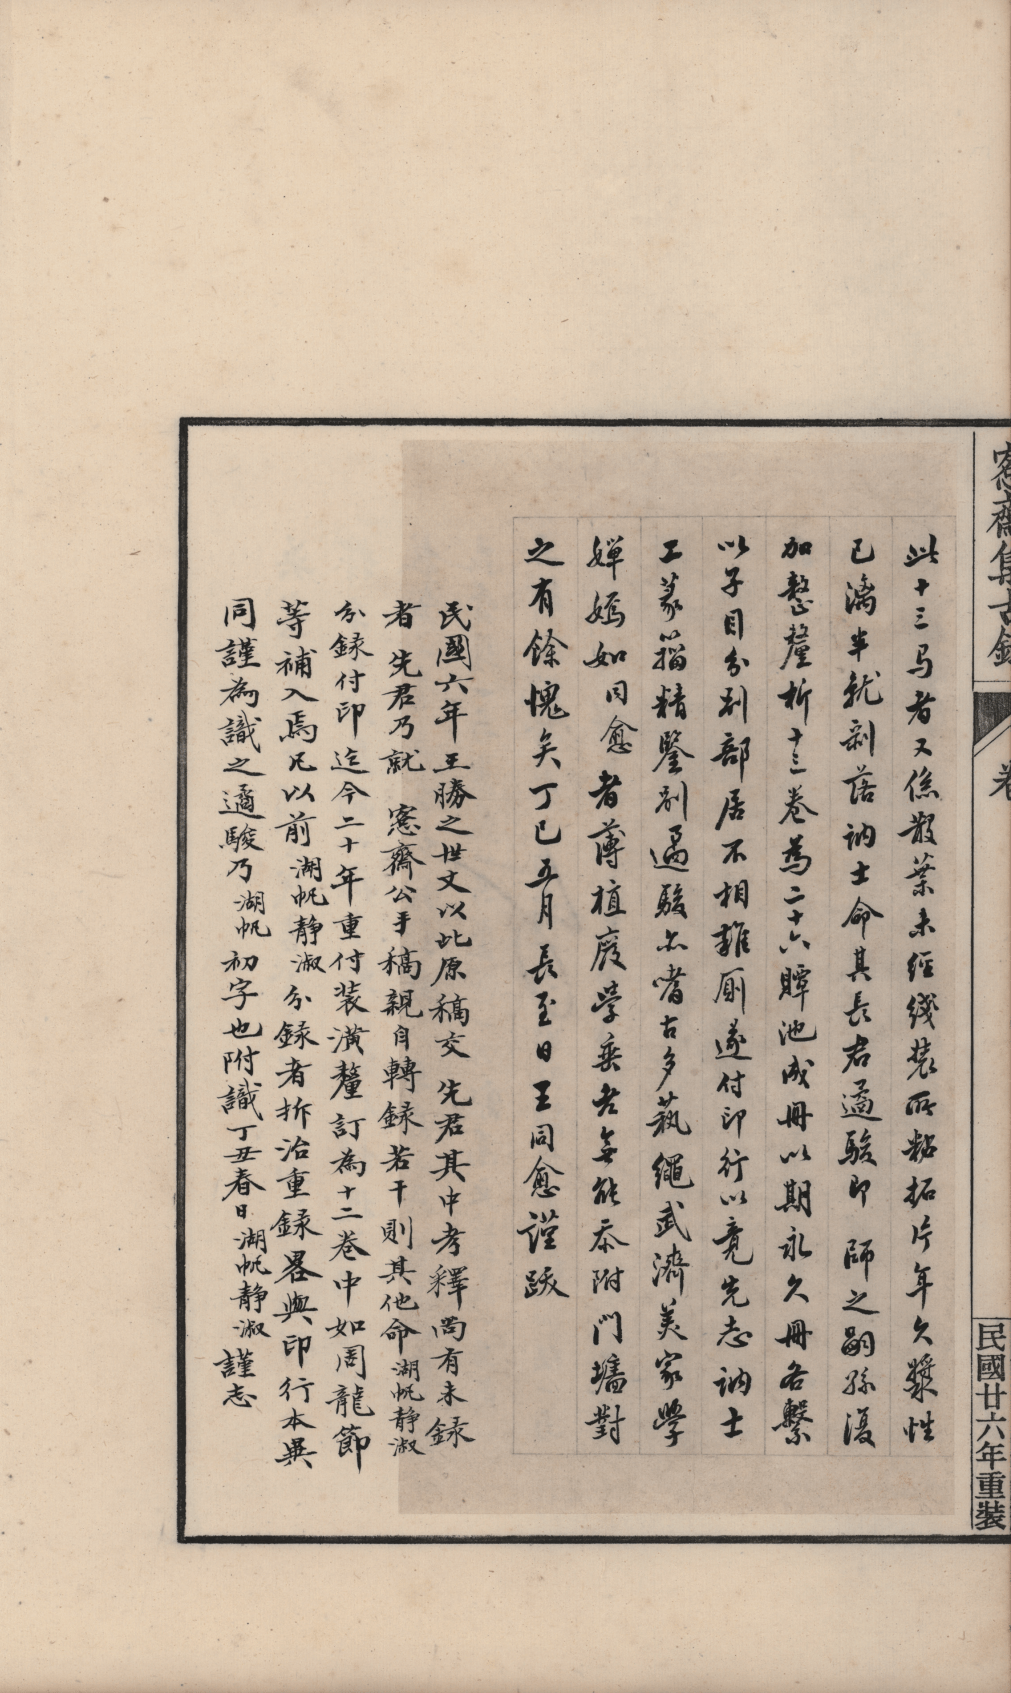 愙齋集古錄
卷
民國廿六年重裝
此十三冊者又係散葉未經綫裝所黏拓片年久漿性
已漓半就剥落訥士命其長君遹駿即 師之嗣孫復
加整釐析十三卷為二十六贉池成冊以期永久冊各繫
以子目分别部居不相雜厠遂付印行以竟先志訥士
工篆籀精鑒别遹駿亦嗜古多蓺繩武濟美家學
嬋嫣如同愈者薄植廢學垂老無能忝附門墻對
之有餘愧矣丁巳五月長至日王同愈謹跋
民國六年王勝之世丈以此原稿交 先君其中考釋尚有未録
者 先君乃就 愙齋公手稿親自轉録若干則其他命湖帆静淑
分録付印迄今二十年重付装潢釐訂為十二卷中如周龍節
等補入焉凡以前湖帆静淑分録者拆治重録畧與印行本異
同謹為識之遹駿乃湖帆初字也附識丁丑春日湖帆静淑謹志